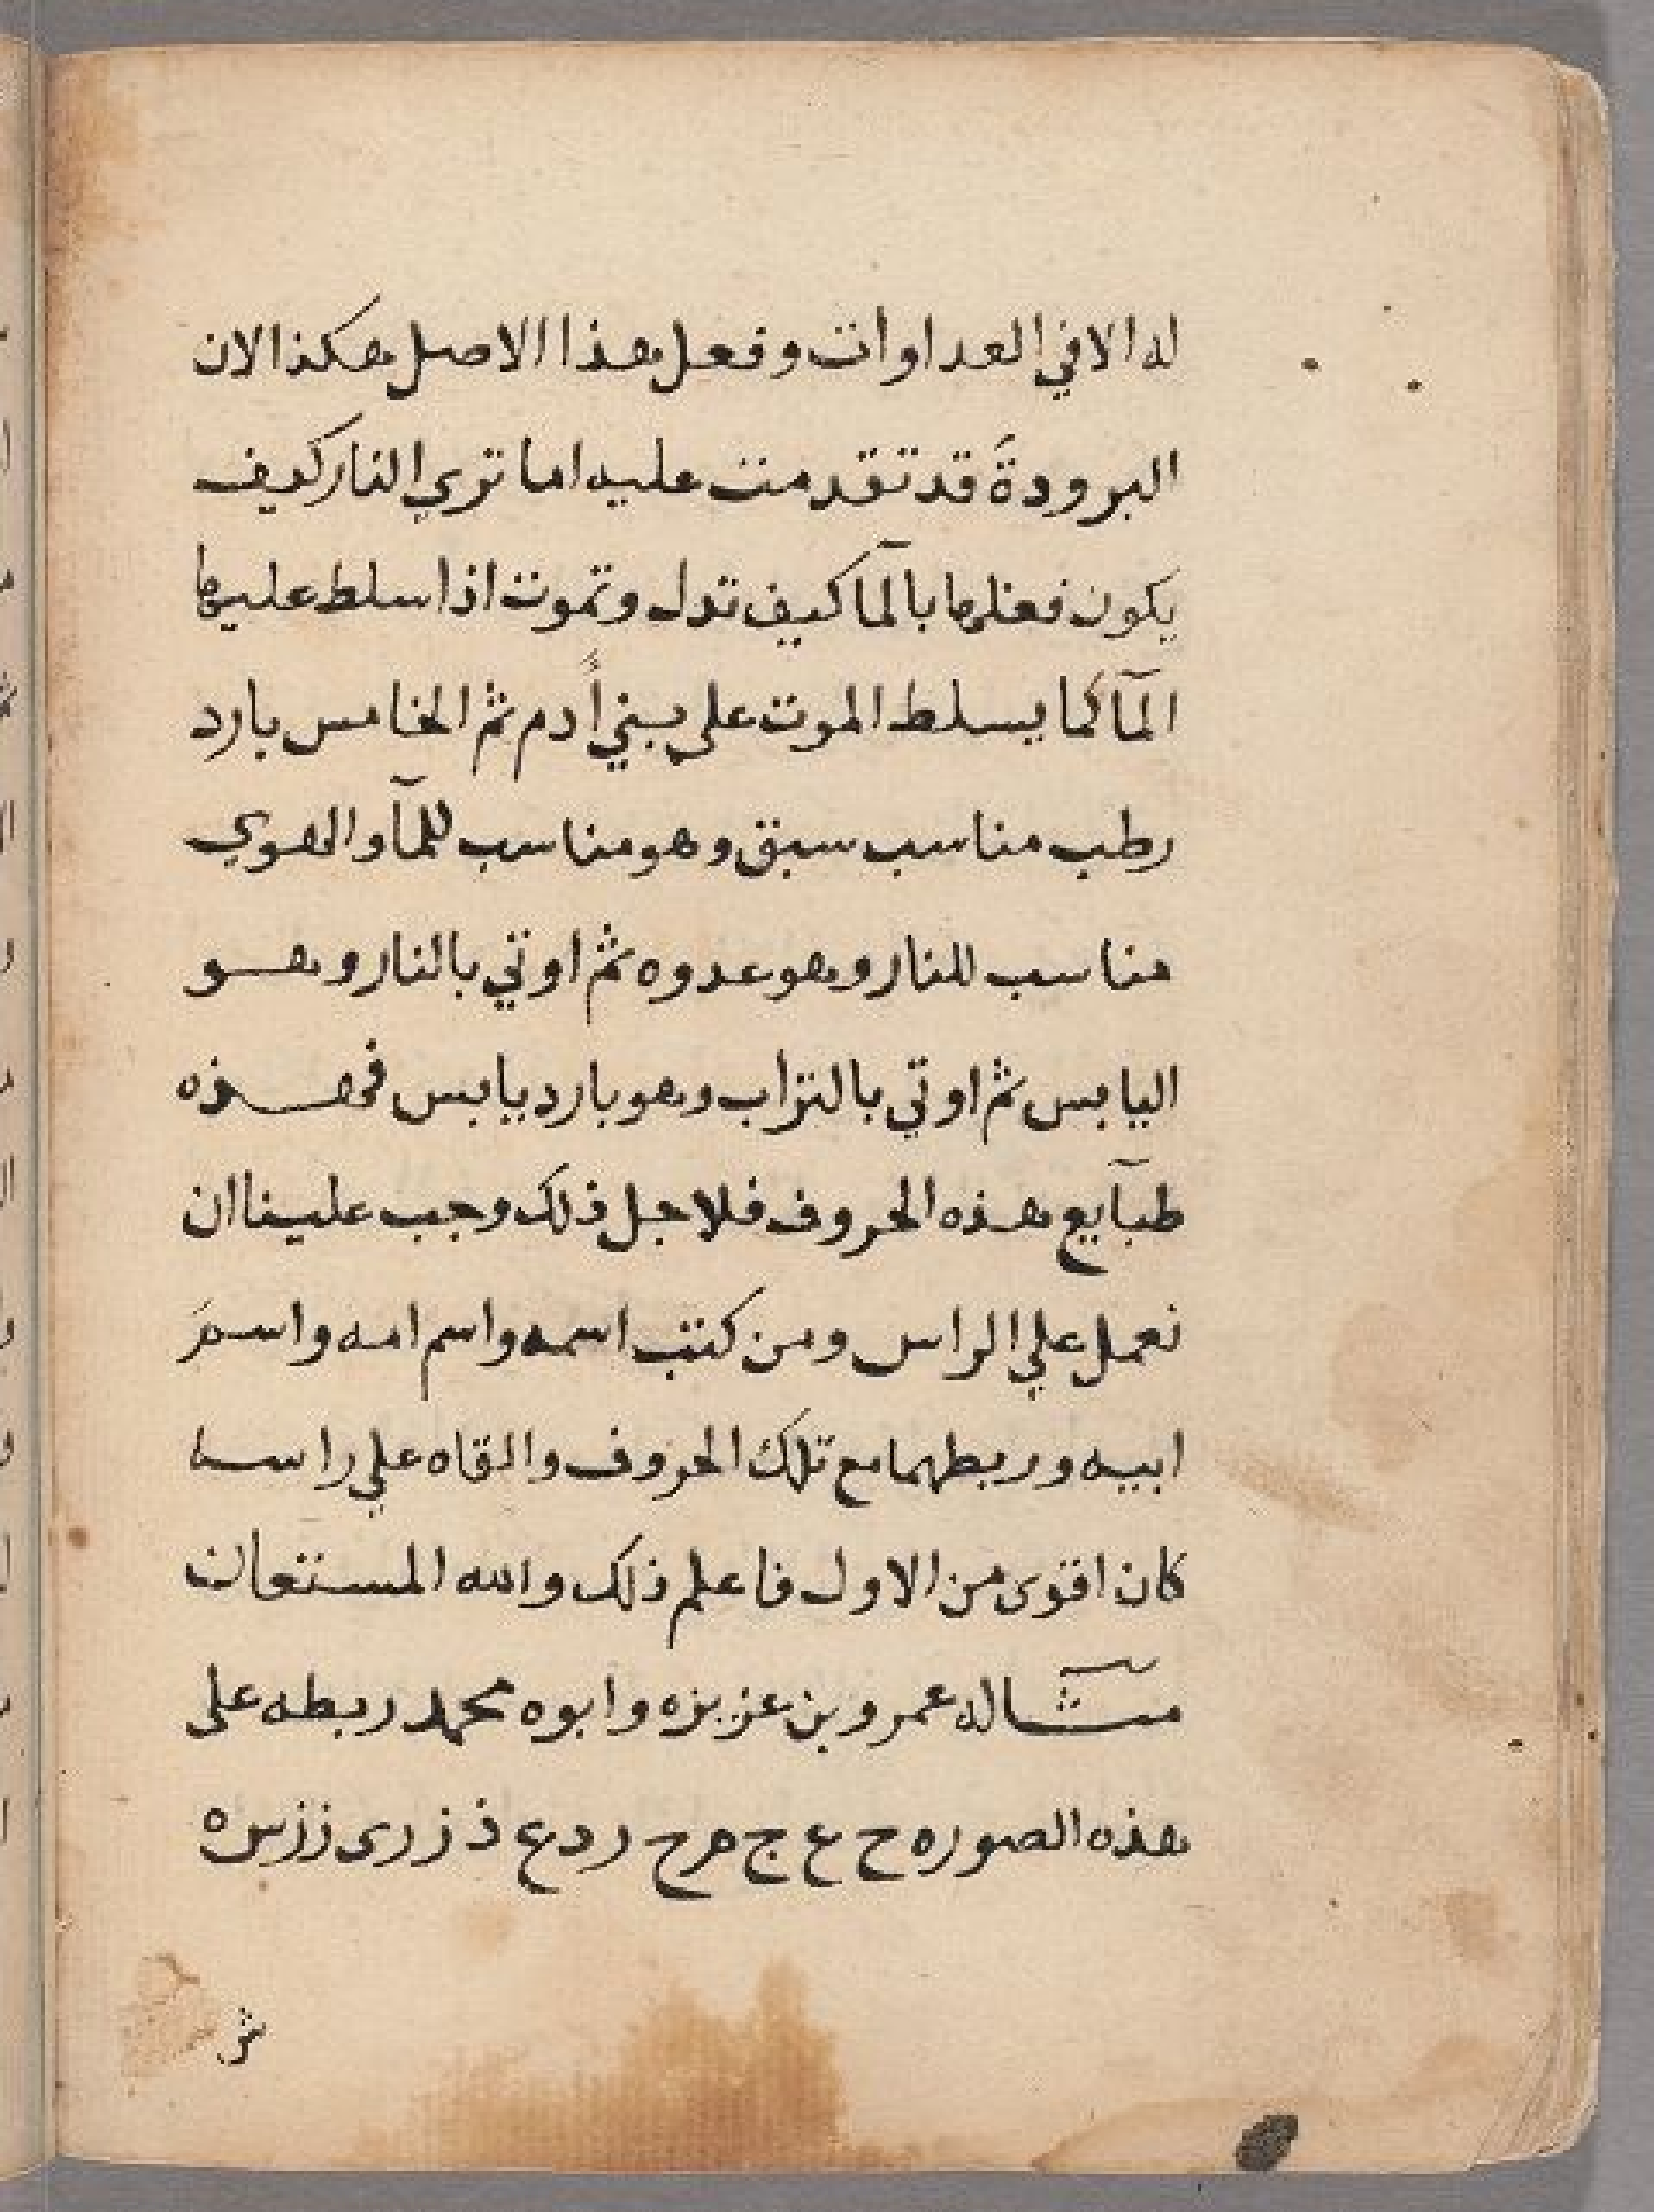 له الا في العداوات وفعل هذا الاصل هكذا لان
البرودة قد تقدمت عليه اما تري النار كيف
يكون فعلها بالمآ كيف تدل وتموت اذا سلط عليها
المآ كما يسلط الموت على بني اًدم ثم الخامس بارد
رطب مناسب سبق وهو مناسب للمآ والهوي
مناسب للنار وهو عدوه ثم اوتي بالنار وهو
اليابس ثم اوتي بالتراب وهو بارد يابس فهذه
طبآيع هذه الحروف فلاجل ذلك وجب علينا ان
نعمل علي الراس ومن كتب اسمه واسم امه واسم
ابيه وربطهما مع تلك الحروف والقاه علي راسه
كان اقوى من الاول فاعلم ذلك والله المستعان
مثاله عمرو بن عزيزه وابوه محمد ربطه على
هذه الصوره ح ع ج م ح ر د ع ذ ز ر ى ز ز س ه